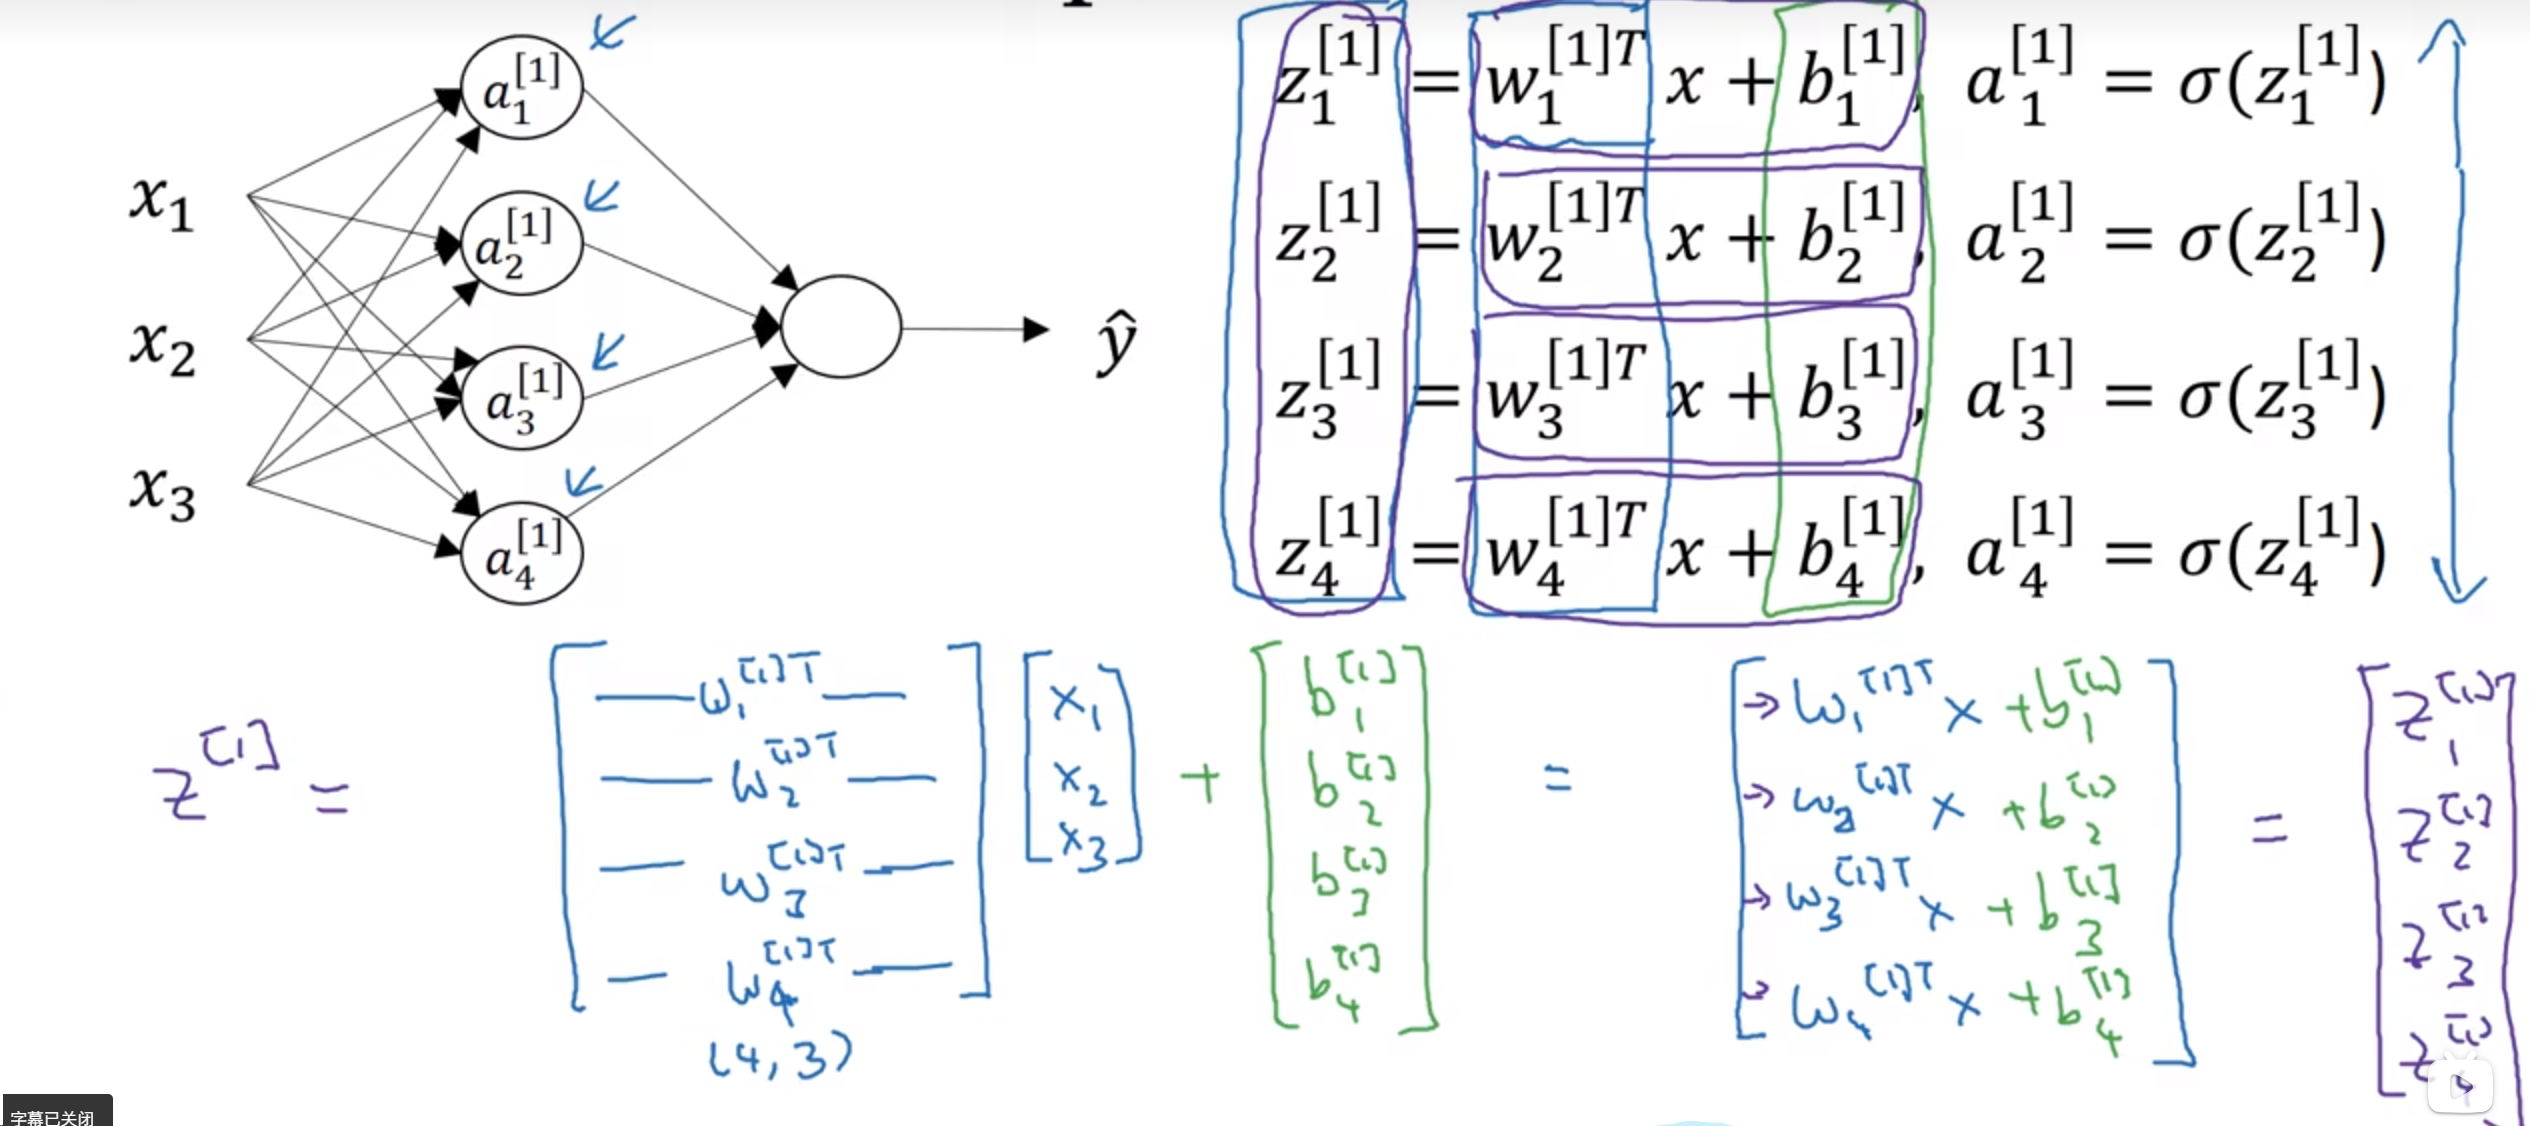 a₁^[1]
a₂^[1]
a₃^[1]
a₄^[1]
x₁
x₂
x₃
ŷ
z₁^[1] = w₁^[1]T x + b₁^[1], a₁^[1] = σ(z₁^[1])
z₂^[1] = w₂^[1]T x + b₂^[1], a₂^[1] = σ(z₂^[1])
z₃^[1] = w₃^[1]T x + b₃^[1], a₃^[1] = σ(z₃^[1])
z₄^[1] = w₄^[1]T x + b₄^[1], a₄^[1] = σ(z₄^[1])
z^[1] =
w₁^[1]T
w₂^[1]T
w₃^[1]T
w₄^[1]T
(4,3)
x₁
x₂
x₃
+
b₁^[1]
b₂^[1]
b₃^[1]
b₄^[1]
=
→ w₁^[1]T x + b₁^[1]
→ w₂^[1]T x + b₂^[1]
→ w₃^[1]T x + b₃^[1]
→ w₄^[1]T x + b₄^[1]
=
z₁^[1]
z₂^[1]
z₃^[1]
z₄^[1]
字幕已关闭